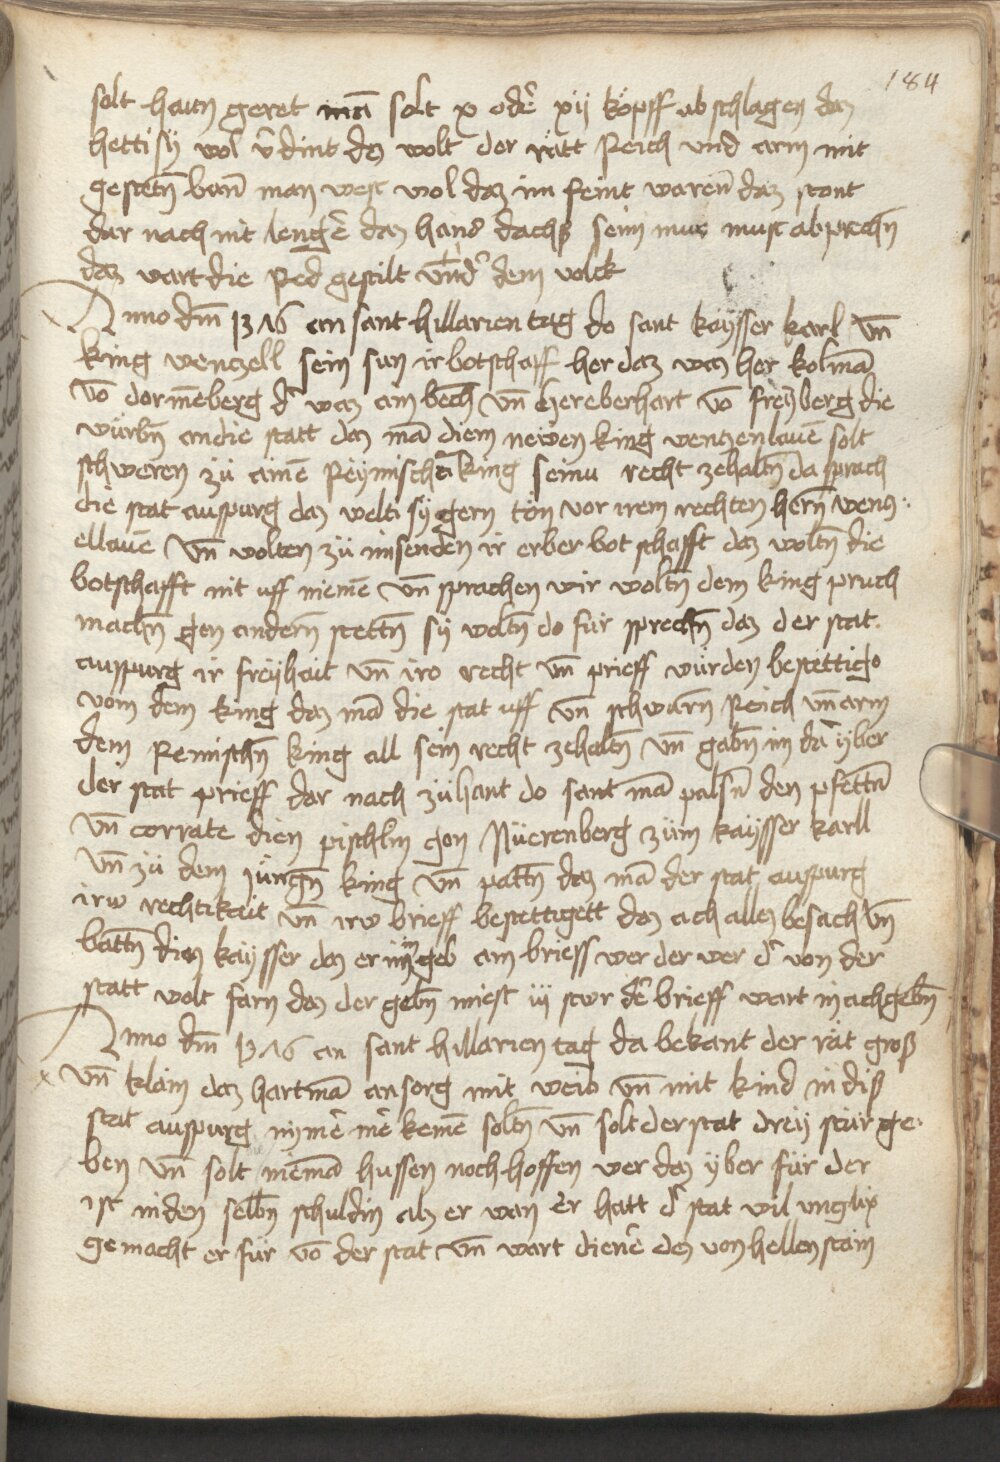 184
solt haun geret mā solt x odē xij köpff ab schlagen dz
hetti sy wol v̄dint dz wolt der rätt Reich vnd arm nit
gestetn̄ wan̄ man west wol daz im feint waren̄ daz stont
dar nach nit lengē daz hans dachs sein mus must abprechn̄
daz wart die Red gestilt vn̄d dem volck
Anno dm̄ 1376 an sant hillarien tag do sant kaysser karl vn̄
king wenczell sein sun ir botschaff her daz waz her kolmā
vō dormēberg d' waz am bech vn̄ her eberhart vō freyberg die
wurbn̄ an die statt daz mā diem neiven king wentzenlauē solt
schweren zü ainē Reymischē king seinu recht zehaltn̄ da sprach
die stat auspurg daz welti sy gern tön vor irem rechten hern̄ wenz:
ellauē vn̄ wolten zü im senden ir erber bot schafft daz woltn̄ die
botschafft nit uff niemē vn̄ sprachen wir woltn̄ dem king pruch
machn̄ gen andern̄ stettn̄ sy woltn̄ do für sprechn̄ daz der stat
auspurg ir freyhait vn̄ iro recht vn̄ prieff würden bestettigo
vom dem king daz mā die stat uff vn̄ schwarn̄ Reich vn̄ arm
dem Remischn̄ king all sein recht zehaltn̄ vn̄ gabn̄ im dā yber
der stat prieff dar nach zühant do sant mā palsn̄ den pfettn̄
vn̄ corrate dien pischlin gon Nüerenberg züm kaysser karll
vn̄ zü dem jüngn̄ king vn̄ pattn̄ daz mā der stat auspurg
irw rechtikait vn̄ irw brieff bestettigett daz ach allez besach vn̄
battn̄ dien kaysser daz er im geb am brieff wer der wer d' von der
statt wolt farn daz der gebn̄ miest iij stwr dē brieff wart in ach gebn̄
Anno dm̄ 1376 an sant hillarien tag da bekant der rät groß
x vn̄ klain daz hartmā an sorg mit weib vn̄ mit kind in diß
stat auspurg nymē mē kemē soltn̄ vn̄ solt der stat dreÿ stür ge:
ben vn̄ solt niemā hussen noch hoffen wer daz yber für der
ist in den selbn̄ schuldin alz er wan er hatt d' stat vil vnglix
gemacht er für vō der stat vn̄ wart dienē dez von hellenstain